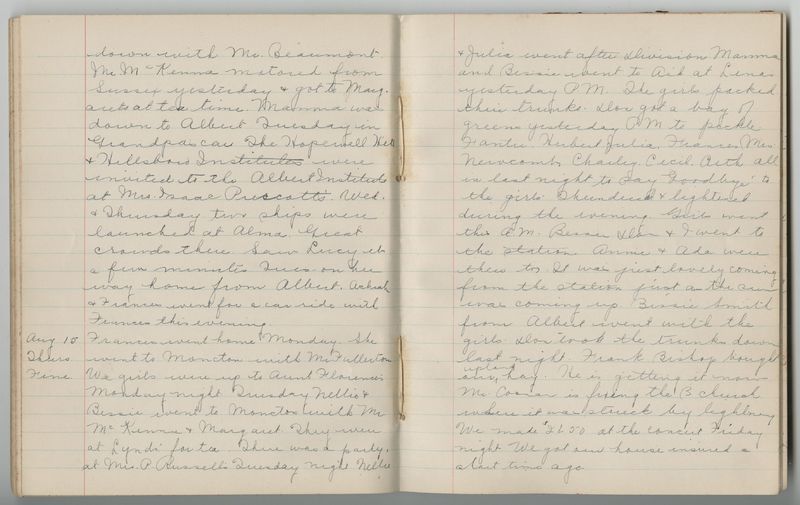 down with Mr. Beaumont.
Mr McKenna motored from
Sussex yesterday & got to Marg-
arets at tea time. Mamma was
down to Albert Tuesday in
Grandpas car The Hopewell Hill
& Hillsboro Institutes were
invited to the Albert Institute
at Mrs. Isaac Prescotts. Wed.
& Thursday two ships were
launched at Alma. Great
crowds there. Saw Lucy
a few minutes Tues. on her
way home from Albert.
& Frances went for a car ride with
Frances this evening.
Aug 15 Frances went home Monday. She
Thurs went to Moncton with Mr Fullerton
Fine We girls were up to Aunt Florences
Monday night Tuesday Nellie &
Bessie went to Moncton with Mr
McKenna & Margaret. They were
at Lynds for tea There was a party,
at Mrs. P. Russells Tuesday night Nellie
& Julia went after Division Mamma
and Bessie went to Aid at Lenas
yesterday P.M. The girls packed
their trunks. Don got a bag of
greens yesterday P.M. to pickle
Fantie Herbert Julia, Frances, Mrs
Newcomb, Charley Cecil Arth all
in last night to say "Goodbye" to
the girls Thundered & lightened
during the evening. Girls went
this A.M. Bessie Don & I went to
the station Annie & Ada were
there too. It was just lovely coming
from the station just as the sun
was coming up. Bessie Smith
from Albert went with the
girls. Don took the trunks down
last night. Frank Bishop bought
our upland hay. He is getting it now
Mr. is fixing the B church
where it was struck by lightning
We made $26.50 at the concert Friday
night We got our house insured a
short time ago